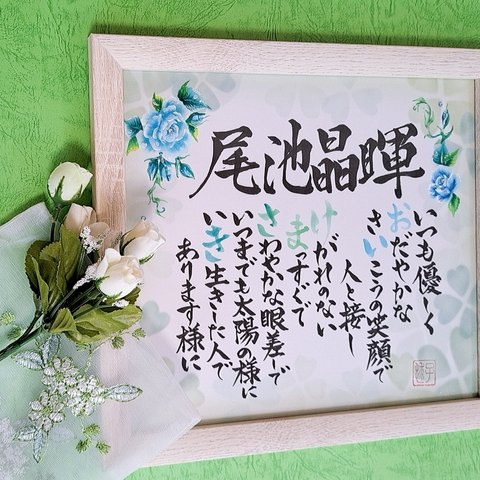 尾池晶暉
いつも優しく
おだやかな
さいこうの笑顔で
人と接し
けがれのない
まっすぐで
さわやかな眼差しで
いつまでも太陽の様に
いき生きした人で
あります様に